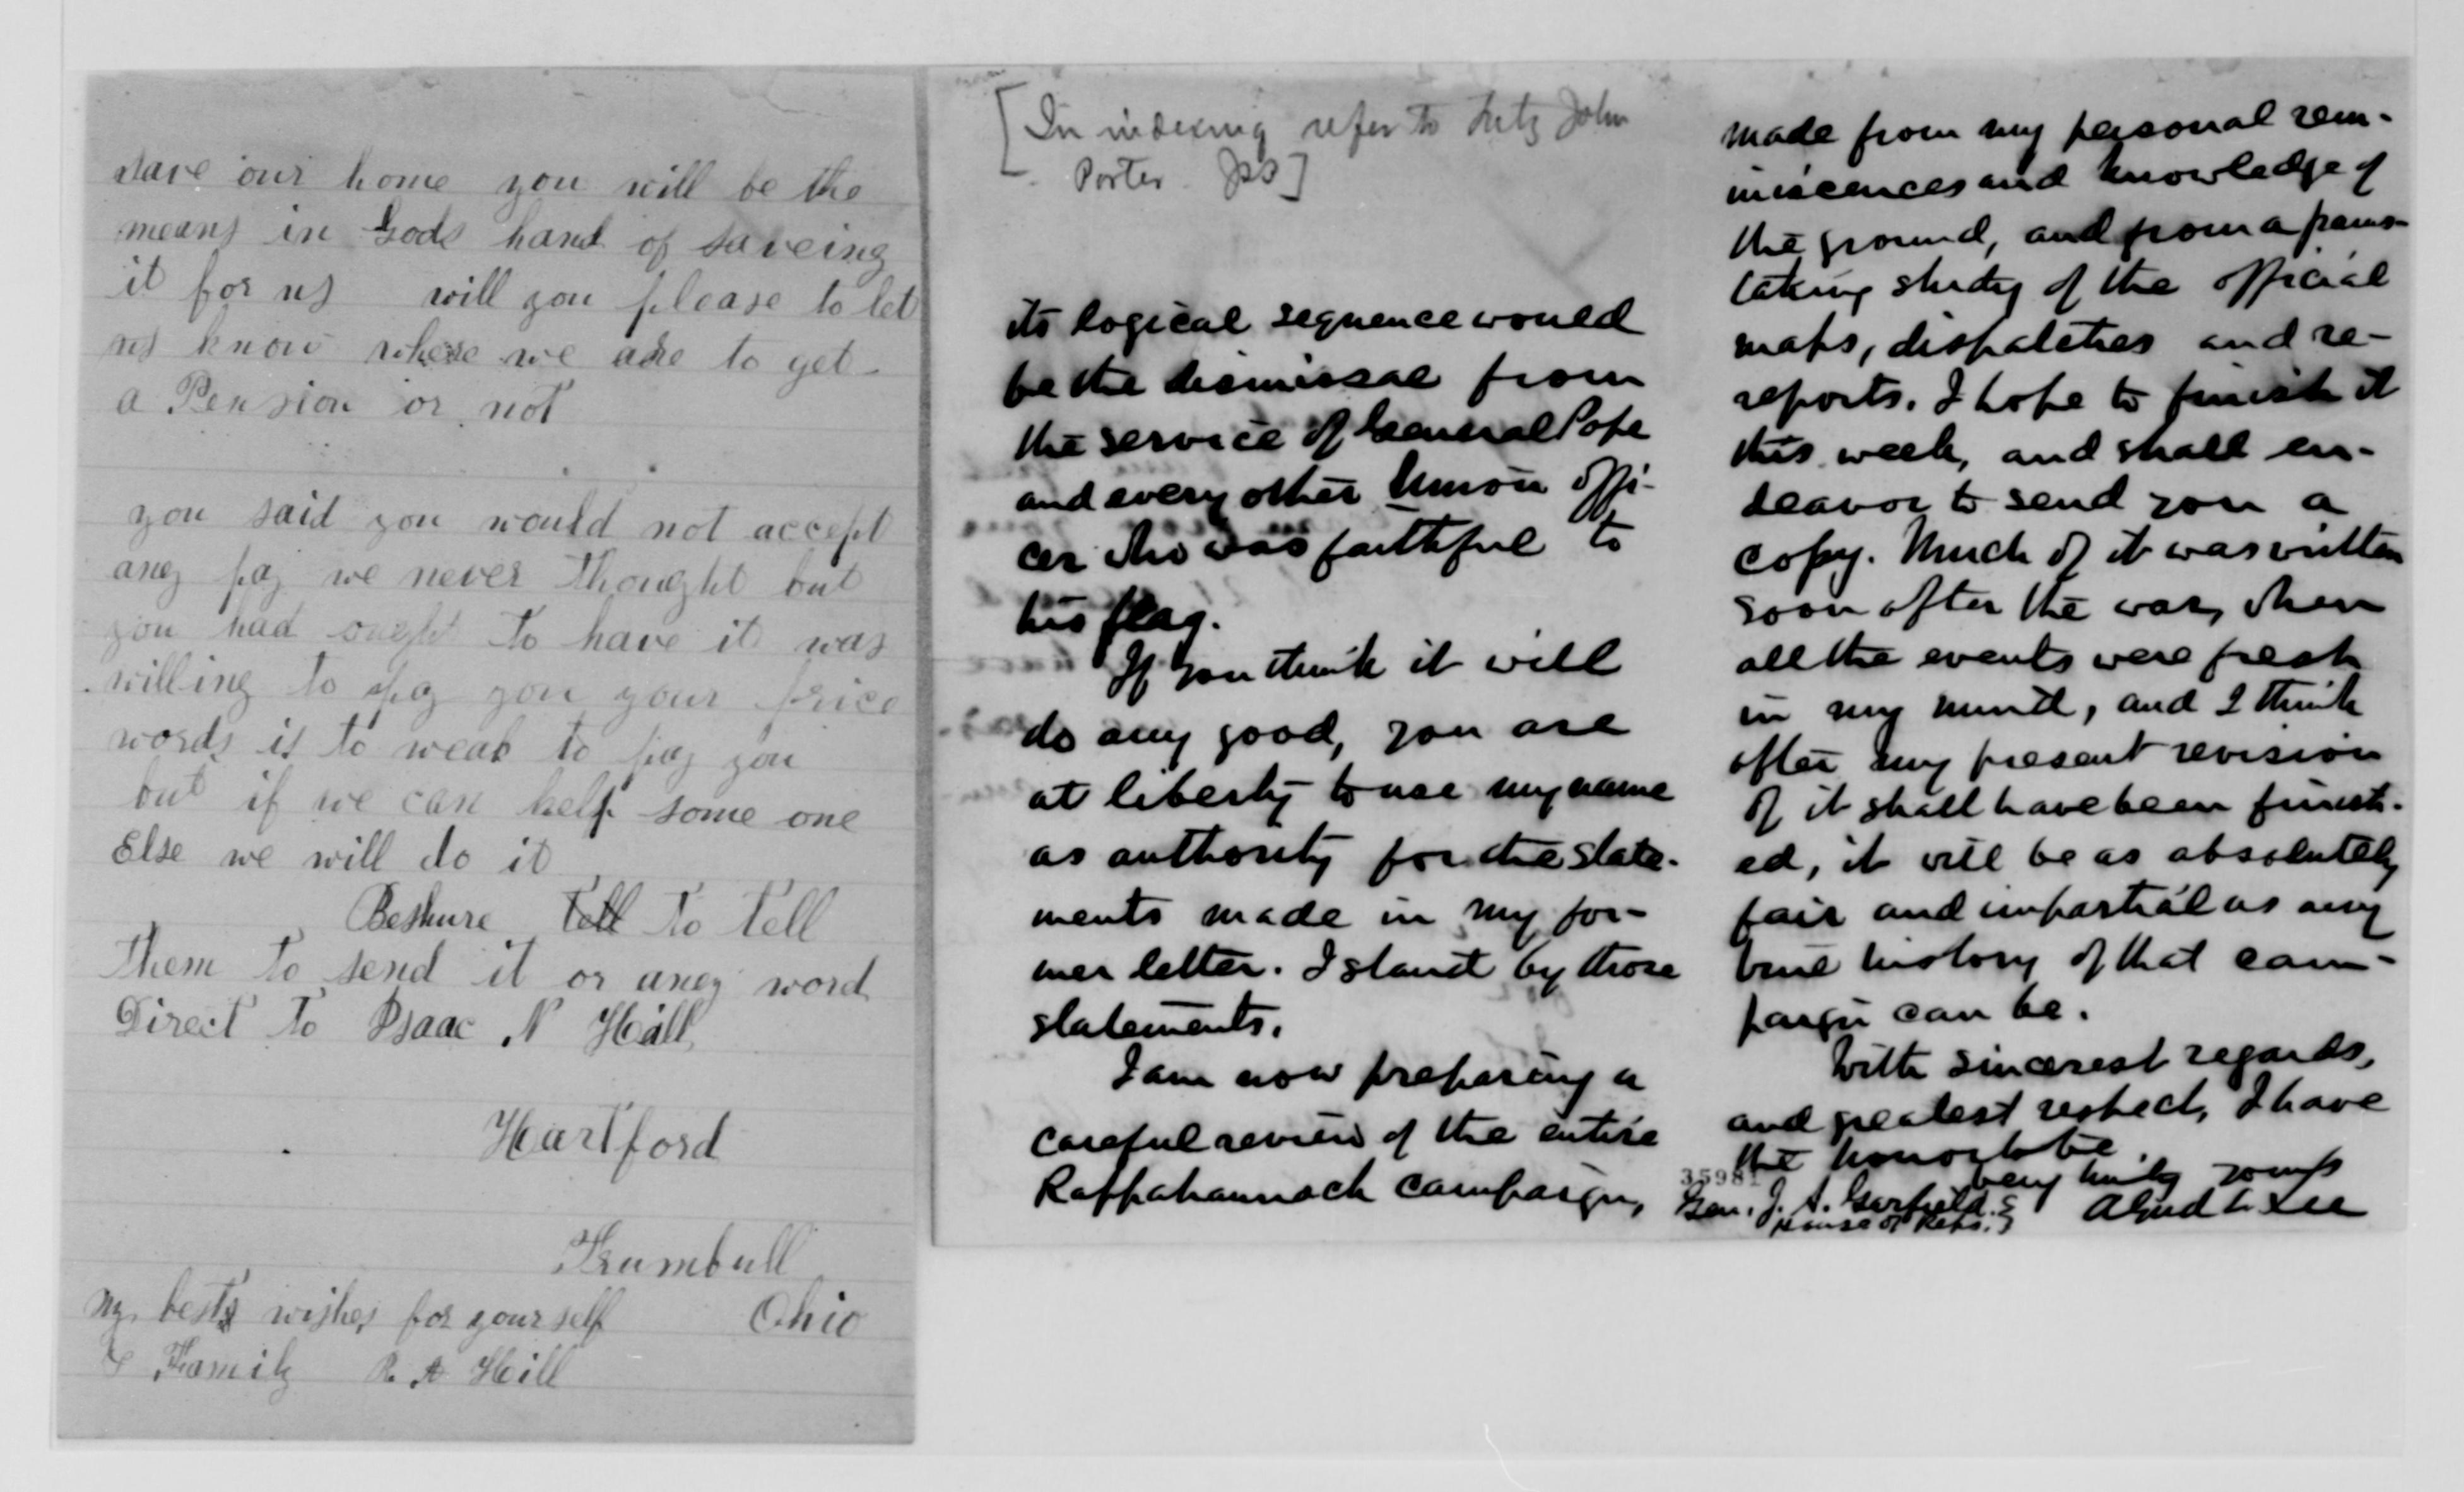 save our home you will be the
means in Gods hand of saveing
it for us will you please to let
us know where we are to get
a Pension or not
you said you would not accept
aney pay we never thought but
you had ought to have it was
willing to pay you your price
words is to weak to pay you
but if we can help some one
Else we will do it
Beshure Tell to tell
them to send it or aney word
Direct to Isaac N Hall
Hartford
Trumbull
Ohio
my bests wishes for yourself
& Family R A Hill
[In indexing refer to Fitz John
Porter. JPS]
its logical sequence would
be the dismissal from
the service of General Pope
and every other Union offi-
cer who was faithful to
his flag.
If you think it will
do any good, you are
at liberty to use my name
as authority for the state-
ments made in my for-
mer letter. I stand by those
statements.
I am now preparing a
careful review of the entire
Rappahannock campaign,
made from my personal rem-
iniscences and knowledge of
the ground, and from a pains-
taking study of the official
maps, dispatches and re-
reports. I hope to finish it
this week, and shall en-
deavor to send you a
copy. Much of it was written
soon after the war, when
all the events were fresh
in my mind, and I think
after my present revision
of it shall have been finish-
ed, it will be as absolutely
fair and impartial as any
true history of that cam-
paign can be.
With sincerest regards,
and greatest respect, I have
the honor to be
very truly yours
35981
Gen. J. A. Garfield
House of Reps.
Alfred E Lee